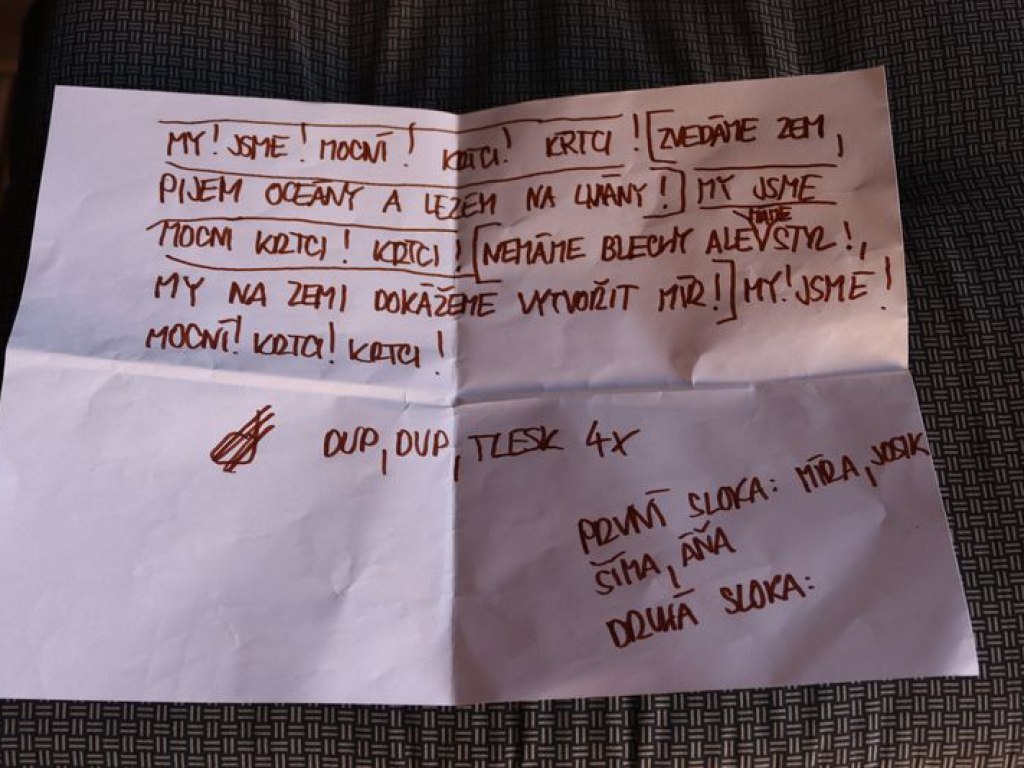 MY! JSME! MOCNÍ! KRTCI! KRTCI! [ZVEDÁME ZEM,
PIJEM OCEÁNY A LEZEM NA LIÁNY!] MY JSME
MÁME
MOCNI KRTCI! KRTCI! [NEMÁME BLECHY ALE STYL!,
MY NA ZEMI DOKÁŽEME VYTVOŘIT MÍR!] MY! JSME!
MOCNÍ! KRTCI! KRTCI!
DUP, DUP, TLESK 4X
PRVNÍ SLOKA: MÍRA, JOSIK
ŠÍMA, ÁŇA
DRUHÁ SLOKA: